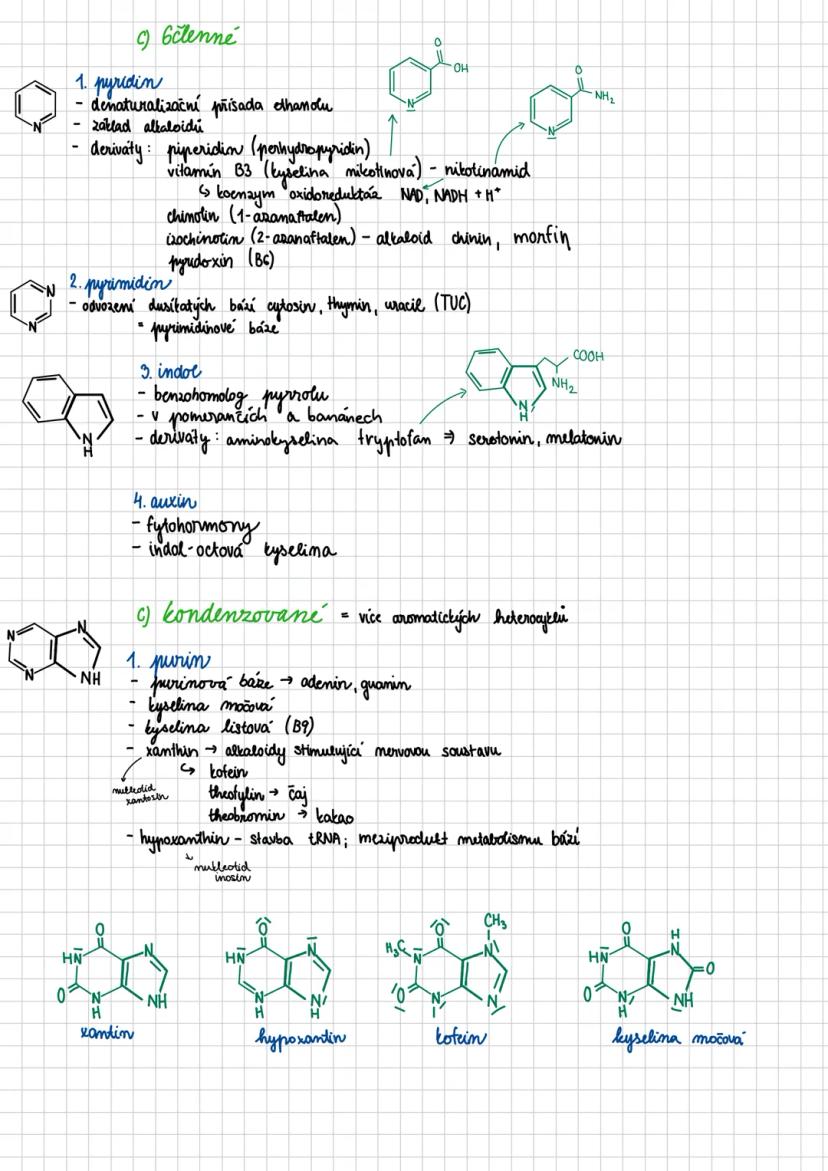 c) 6členné
1. pyridin
- denaturalizační přísada ethanolu
- základ alkaloidů
- deriváty: piperidin (perhydropyridin)
vitamín B3 (kyselina nikotinová) - nikotinamid
↳ koenzym oxidoreduktáz NAD, NADH + H⁺
chinolin (1-azanaftalen)
izochinolin (2-azanaftalen) - alkaloid chinin, morfin
pyridoxin (B6)
O
OH
N
O
NH₂
N
N
2. pyrimidin
- odvození dusíkatých bází cytosin, thymin, uracil (TUC)
= pyrimidinové báze
N
N
3. indol
- benzohomolog pyrrolu
- v pomerančích a banánech
- deriváty: aminokyselina tryptofan ⇒ serotonin, melatonin
N
H
COOH
NH₂
N
H
4. auxin
- fytohormony
- indol-octová kyselina
c) kondenzované = více aromatických heterocyklů
N
N
N
NH
1. purin
- purinová báze → adenin, guanin
- kyselina močová
- kyselina listová (B9)
- xanthin → alkaloidy stimulující nervovou soustavu
↳ kofein
nukleotid
xantosin
theofylin → čaj
theobromin → kakao
- hypoxanthin - stavba tRNA; meziprodukt metabolismu bází
↓
nukleotid
inosin
O
HN
N
O
N
H
NH
xantin
O
HN
N
N
H
N
H
hypoxantin
O
CH₃
H₃C
N
N
O
N
N
kofein
O
H
HN
N
O
O
N
H
NH
kyselina močová